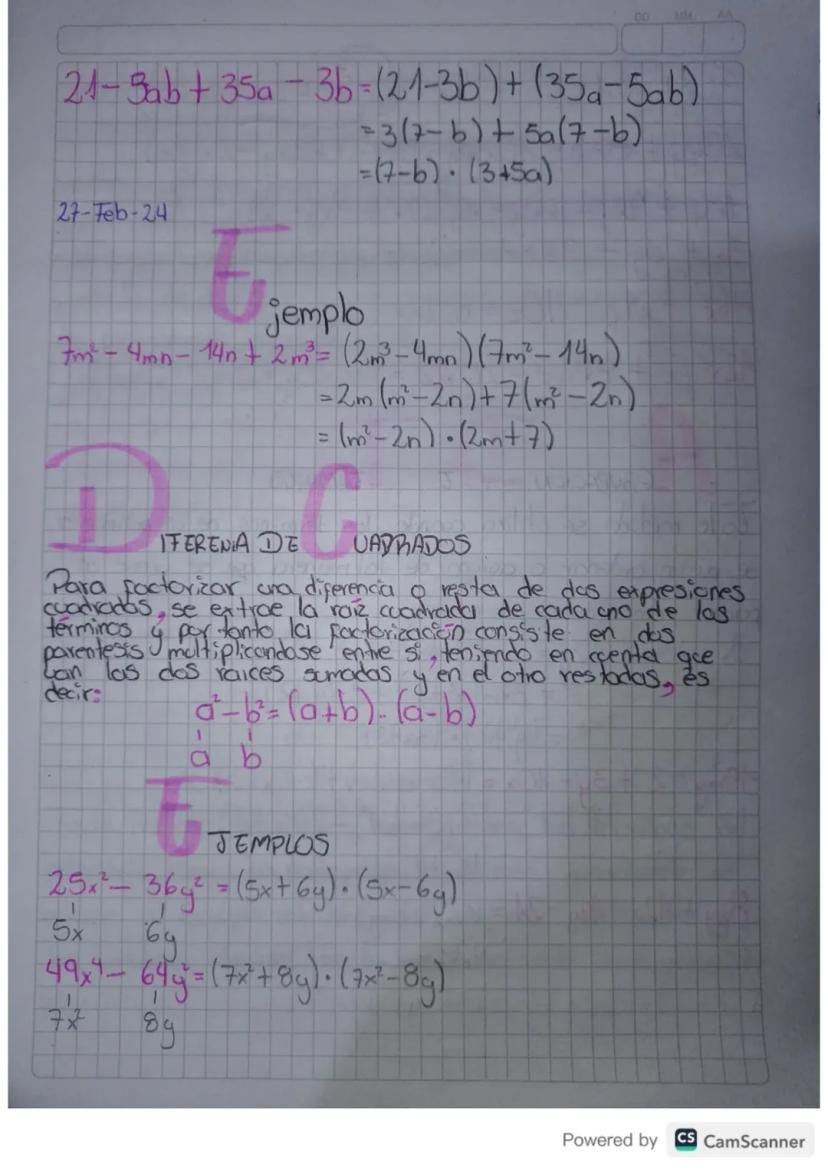 DD MM AA
21-5ab + 35a - 3b = (21-3b) + (35a-5ab)
= 3(7-b) + 5a(7-b)
= (7-b) · (3+5a)
27-Feb-24
Ejemplo
7m² - 4mn - 14n + 2m³ = (2m³-4mn)(7m²-14n)
= 2m(m²-2n) + 7(m²-2n)
= (m²-2n) · (2m+7)
DIFERENIA DE CUADRADOS
Para factorizar una diferencia o resta de dos expresiones
cuadradas, se extrae la raíz cuadrada de cada uno de los
términos y por tanto la factorización consiste en dos
parentesis multiplicandose entre si, teniendo en cuenta que
van las dos raices sumadas y en el otro restadas, es
decir:
a²-b² = (a+b) · (a-b)
a b
EJEMPLOS
25x² - 36y² = (5x+6y) · (5x-6y)
5x 6y
49x⁴ - 64y² = (7x²+8y) · (7x²-8y)
7x² 8y
Powered by CS CamScanner